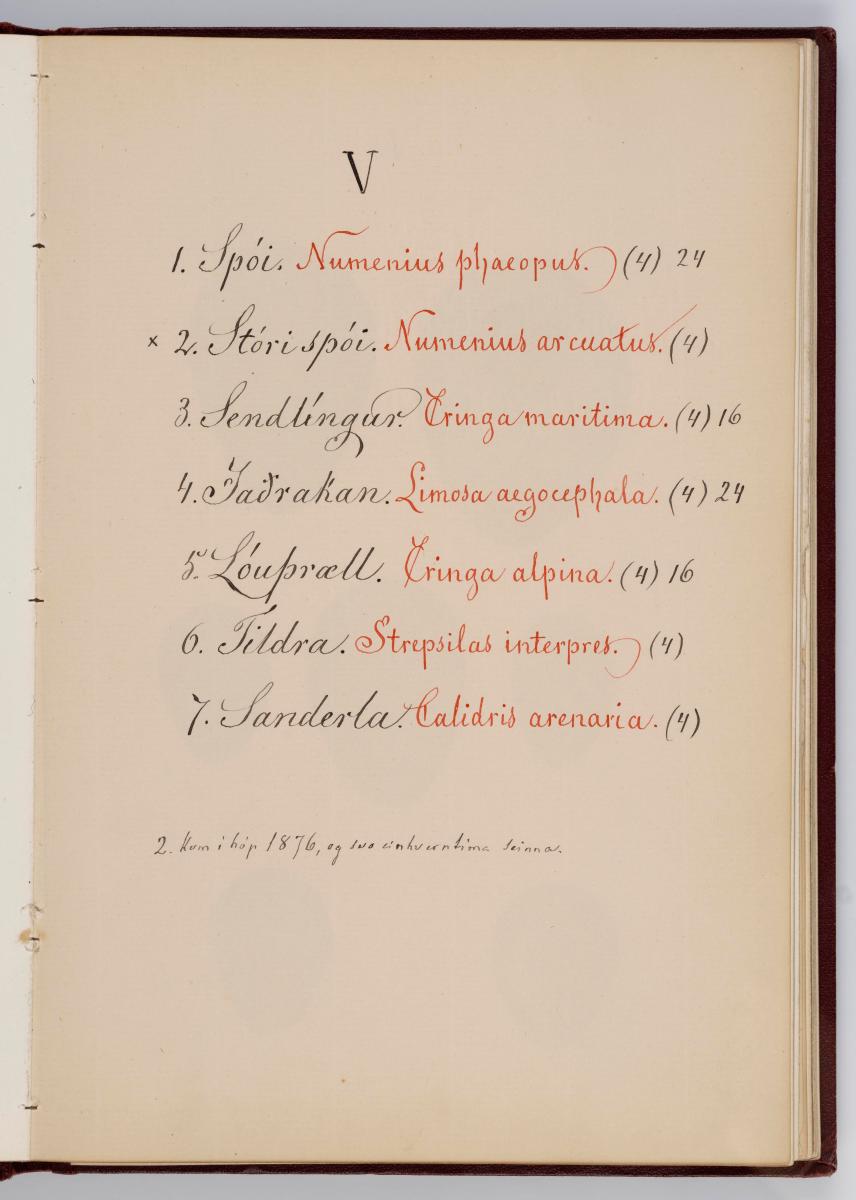 V
1. Spói. Numenius phaeopus. (4) 24
x 2. Stóri spói. Numenius arcuatus. (4)
3. Sendlíngur. Tringa maritima. (4) 16
4. Jaðrakan. Limosa aegocephala. (4) 24
5. Lóuþræll. Tringa alpina. (4) 16
6. Tildra. Strepsilas interpres. (4)
7. Sanderla. Calidris arenaria. (4)
2. Kom í hóp 1876, og svo einhverntíma seinna.